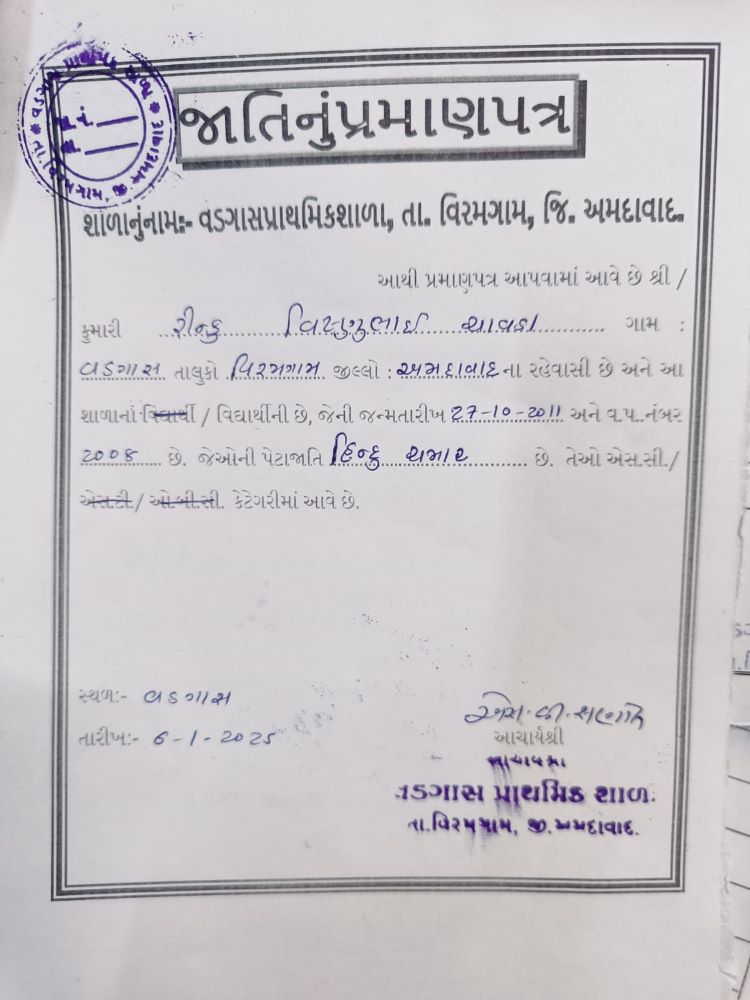 જાતિનુંપ્રમાણપત્ર
શાળાનુંનામઃ- વડગાસપ્રાથમિકશાળા, તા. વિરમગામ, જિ. અમદાવાદ.
આથી પ્રમાણપત્ર આપવામાં આવે છે શ્રી /
કુમારી રીન્કુ વિષ્ણુભાઈ ચાવડા ગામ :
વડગાસ તાલુકો વિરમગામ જીલ્લો : અમદાવાદ ના રહેવાસી છે અને આ
શાળાનાં વિદ્યાર્થી / વિદ્યાર્થીની છે, જેની જન્મતારીખ 27-10-2011 અને વ.પ..નંબર
2008 છે. જેઓની પેટાજાતિ હિન્દુ ચમાર છે. તેઓ એસ.સી./
એસ.ટી. / ઓ.બી.સી. કેટેગરીમાં આવે છે.
સ્થળઃ- વડગાસ
તારીખઃ- 6-1-2025
આચાર્યશ્રી
વડગાસ પ્રાથમિક શાળા
તા.વિરમગામ, જી.અમદાવાદ.